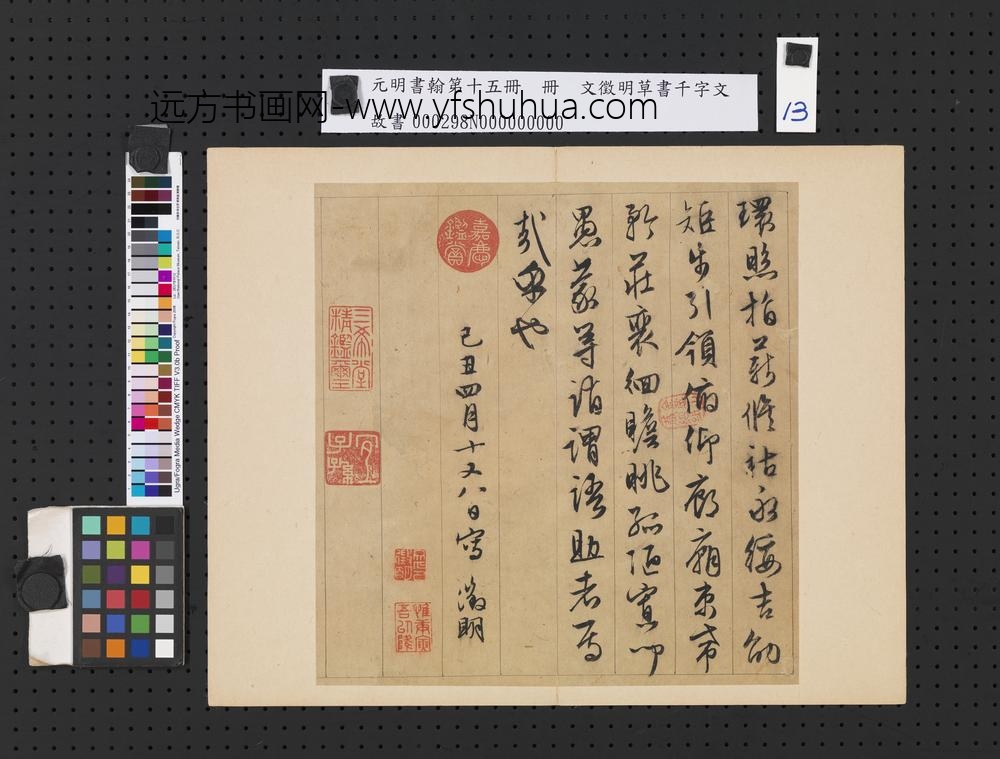 元明書翰第十五冊 冊 文徵明草書千字文
故書 000298N000000000
远方书画网-www.yfshuhua.com
13
環照指薪修祜永綏吉劭
矩步引領俯仰廊廟束帶
矜莊裵徊瞻眺孤陋寡聞
愚蒙等誚謂語助者焉
哉乎也
己丑四月十又八日寫 徵明
嘉慶鑑賞
三希堂精鑑璽
宜子孫
惟庚寅吾以降
Ugra/Fogra Media Wedge CMYK TIFF V3.0b Proof